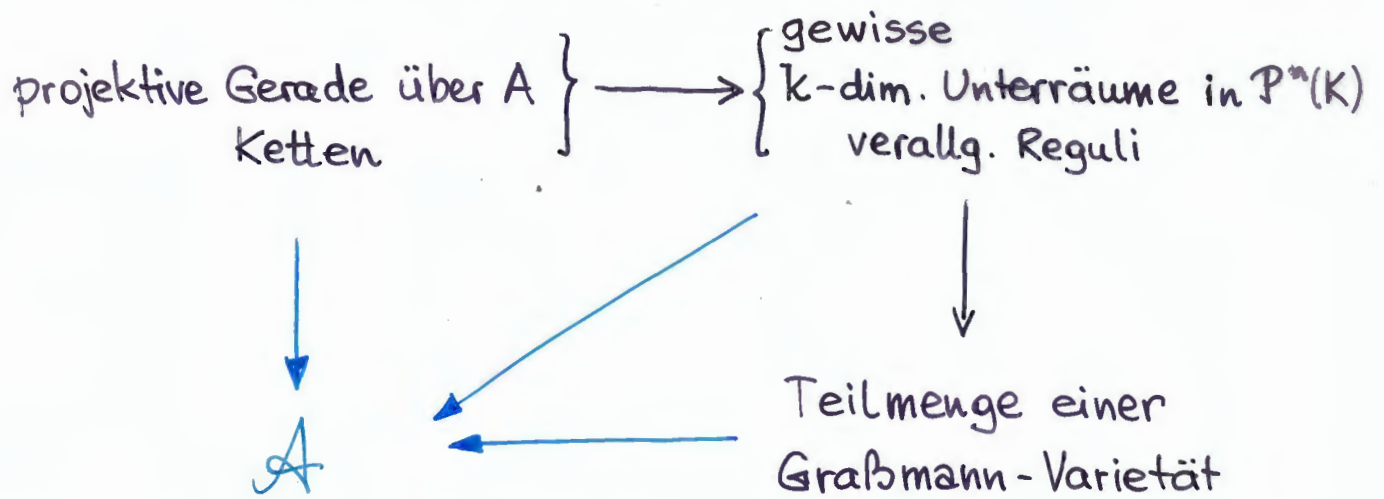 projektive Gerade über A
Ketten
gewisse
k-dim. Unterräume in Pⁿ(K)
verallg. Reguli
A
Teilmenge einer
Graßmann-Varietät